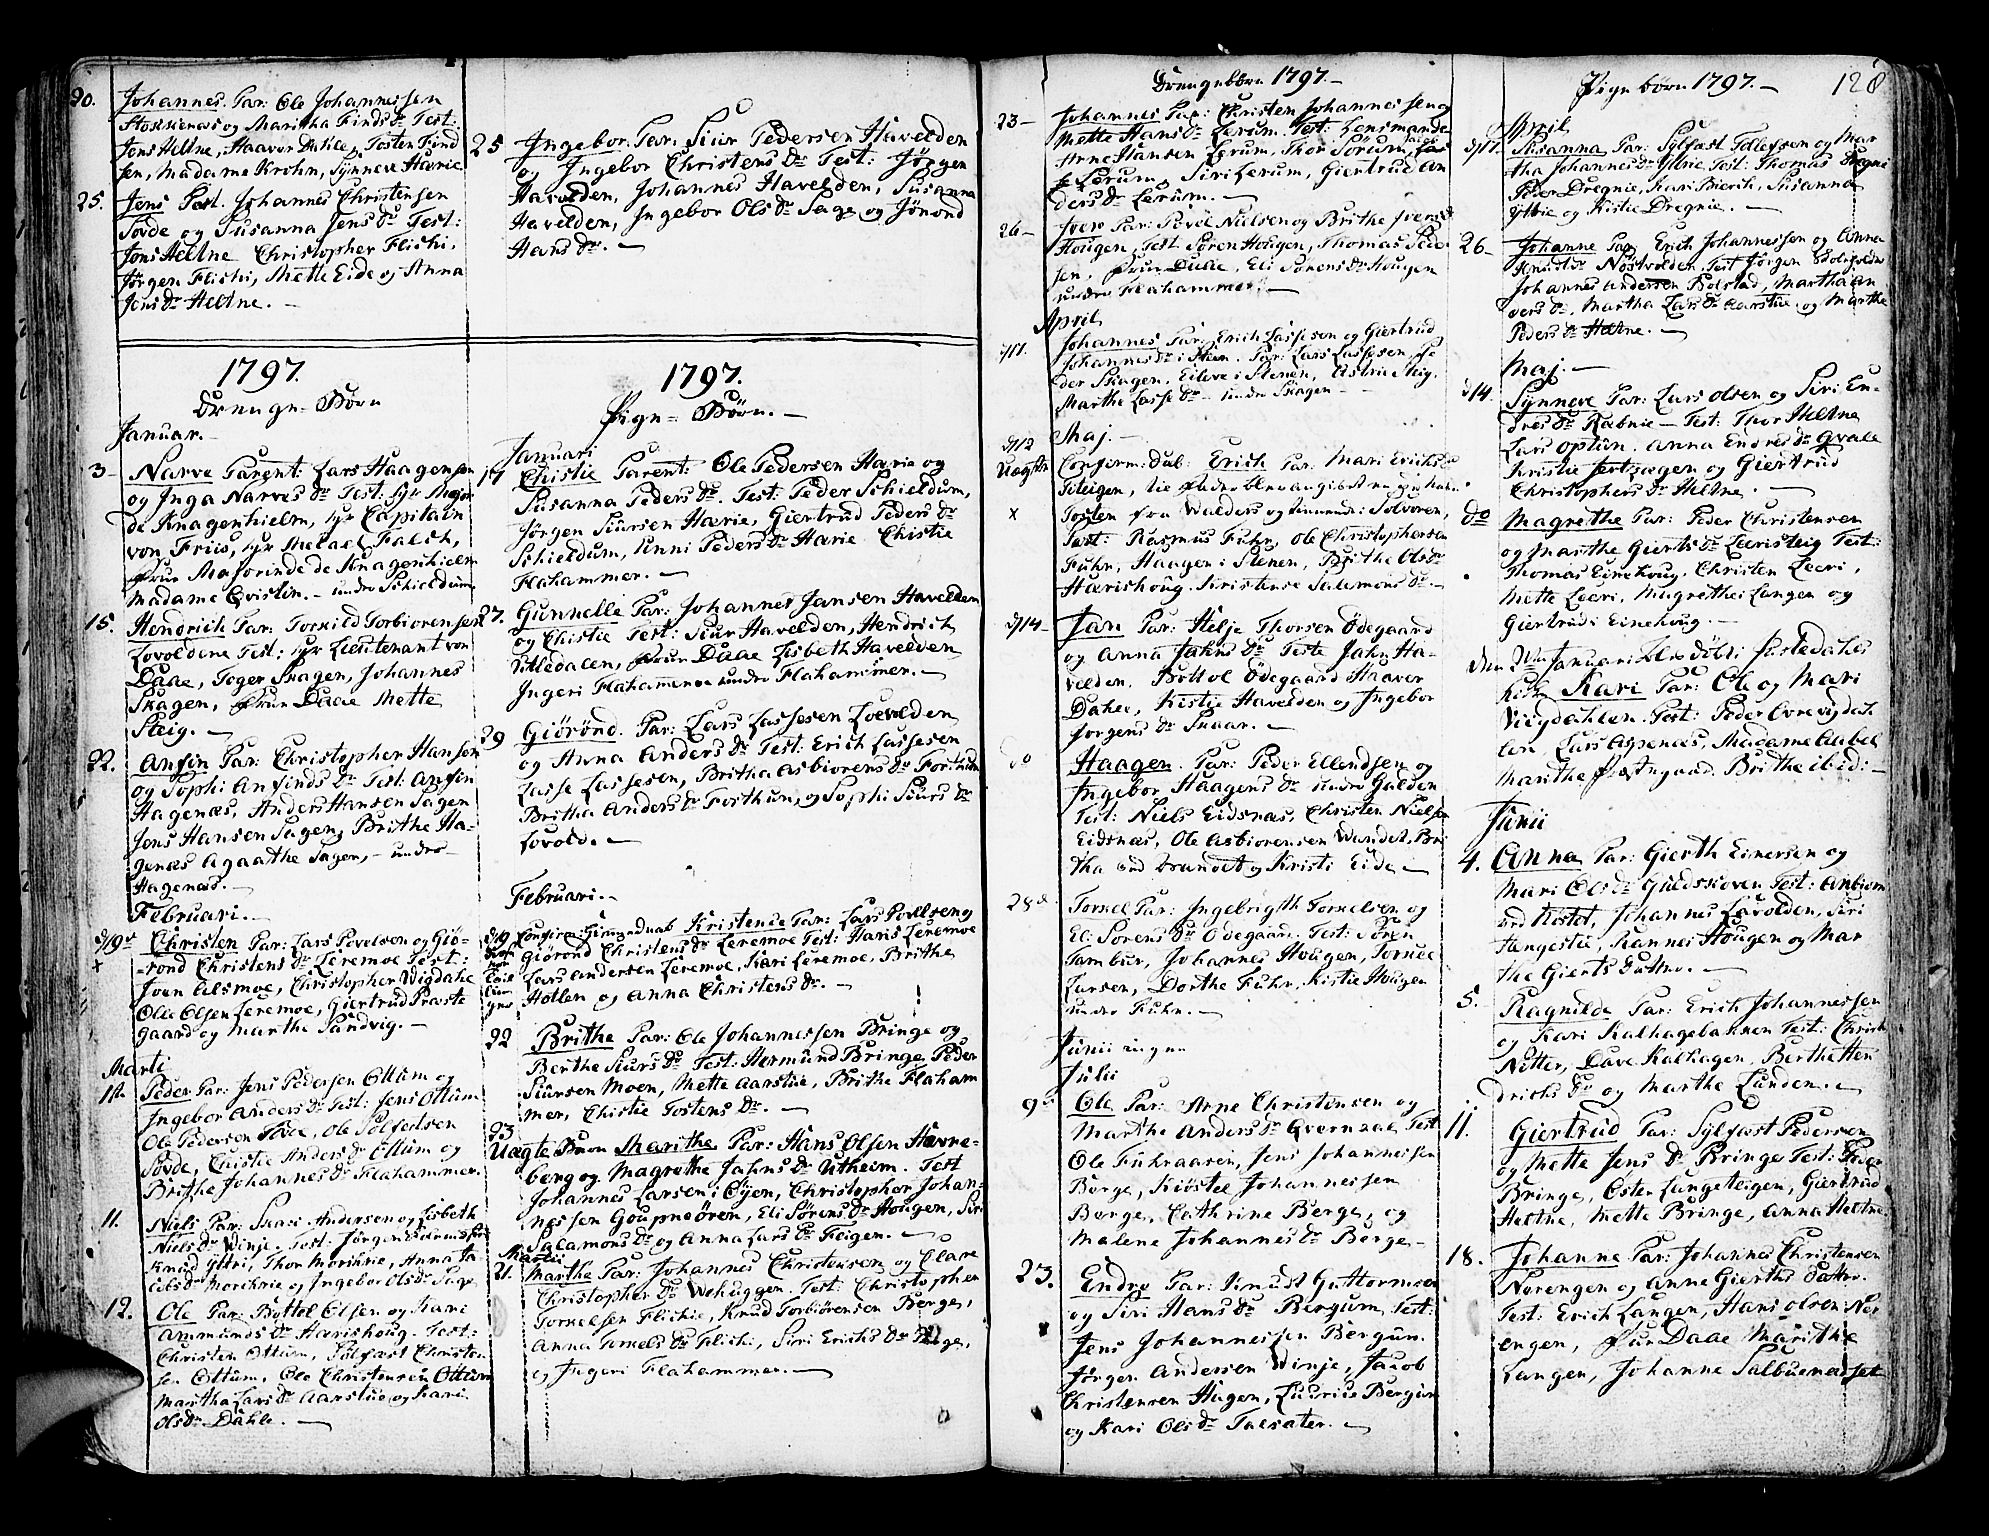 20. Johannes. Par: Ole Johannessen
Stokkenæs og Maritha Finds Dr. Test:
Jens Heltne, Haaver Dahle, Tosten Find
sen, Madame Krohn, Synneve Harie
25. Jens Par. Johannes Christensen
Tovde og Susanna Jens Dr. Test:
Jens Heltne Christopher Flichi,
Jørgen Flichi, Mette Eide og Anna
Jens Dr. Heltne. -
25 Ingebor. Par. Siur Pedersen Havelden
og Ingebor Christens Dr. Test: Jørgen
Havelden, Johannes Havelden, Susanna
Havelden, Ingebor Ols Dr. Sage og Jönond
Hans Dr. -
1797.
Drenge=Børn
Januar. -
3- Narve Parent: Lars Haagensen
og Inga Narves Dr. Test: hr Major
de Knagenhielm, hr Capitain
von Friis, hr Michael Falch,
Frue Majorinde de Knagenhielm
Madame Qvistin. - under Schieldum
15. Hendrich Par: Torkild Torbiørensen
Lovoldene Test: hr Lieutenant von
Daae, Toger Skagen, Johannes
Skagen, Frue Daae Mette
Steig. -
22. Anfin Par: Christopher Hansen
og Sophi Anfinds Dr. Test: Anfin
Hagenæs, Anders Hansen Sagen
Jens Hansen Sagen, Brithe Ha-
genæs Agaathe Sagen, - under
Hagenæs. -
Februari. -
d/19de Christen Par: Lars Povelsen og Giø-
rond Christens Dr. Leremoe Test:
Iven Alsmoe, Christopher Vigdahl
Ole Olsen Leremoe, Giertrud Præste
gaard og Marthe Sandvig. -
Marti
12. Peder Par: Jens Pedersen Ottum og
Ingebor Anders Dr. Test: Jens Ottum
Ole Pedersen Tovde, Ole Solfestsen
Tovde, Christie Anders Dr. Ottum og
Brithe Johannes Dr. Flahammer.
11. Niels Par: Andersen og Lisbeth
Niels Dr. Winje. Test: Jørgen
Knud Yttri, Thor Morkrie, Anna Ja
cobs Dr. Morkrie og Ingebor Ols Dr. Sage
12. Ole Par: Bottel Olsen og Kari
Ammunds Dr. Harishoug. Test:
Christen Ottum, Solfæst Christen
sen Ottum, Ole Christensen Ottum
Martha Lars Dr. Aarstue og Kari
Ols Dr. Dahle. -
1797.
Pige=Børn. -
Januari
17 Christie Parent: Ole Pedersen Harie og
Susanna Peders Dr. Test: Peder Schieldum,
Jørgen Siursen Harie, Giertrud Peders Dr.
Schieldum, Unni Peders Dr. Harie Chistie
Flahammer. -
27. Gunnelle Par: Johannes Jansen Havelden
og Chistie Test: Siur Havelden, Hendrich
Utledalen, Frue Daae Lisbeth Havelden
Ingeri Flahammer under Flahammer. -
29 Giörönd. Par: Lars Lassesen Lovolden
og Anna Anders Dr. Test: Erich Lassesen
Lasse Lassesen, Britha Asbiorens Dr. Forthun
Britha Anders Dr. Forthun, og Sophi Siurs Dr.
Lovold. -
Februari. -
d/19 Confirm: Kristence Par: Lars Povelsen og
Giørond Christens Dr. Leremoe Test: Hans Leremoe
Lars Andersen Leremoe, Kari Leremoe, Brithe
Hollen og Anna Christens Dr. -
22 Brithe Par: Ole Johannessen Bringe og
Berthe Siurs Dr. Test: Hermund Bringe, Peder
Siursen Moen, Mette Aarstue, Brithe Flaham
mer, Chistie Tostens Dr. -
23
Uægte Barn Marithe Par: Hans Olsen Havne-
berg og Magrethe Jahns Dr. Utheim. Test
Johannes Larsen i Øyen, Christopher Johan-
nessen Goupneören, Eli Sörens Dr. Hougen, Siri
Salamons Dr. og Anna Lars Dr. Feigen. -
Martii
21. Marthe Par: Johannes Christensen og Clare
Christopher Dr. Wehuggen Test: Christopher
Tornelsen Flichie, Knud Torbiörensen Berge,
Anna Tornels Dr. Flichi, Siri Erichs Dr. Berge,
og Ingeri Flahammer. -
Drengebørn 1797. -
23- Johannes Par: Christen Johannessen og
Mette Hans Dr. Lerum. Test: Lensmand
Arne Hansen Lerum, Thor Sorum,
Lerum, Siri Lerum, Giertrud An
ders Dr. Lerum. -
26- Iver Par: Povel Nielsen og Brithe Ivers Dr.
Hougen, Test Sören Hougen, Thomas Peder
sen, Frue Daae, Eli Sørens Dr. Hougen
under Flahammer. -
April
d/17. Johannes Par: Erich Lassesen og Giertrud
Johannes Dr. i Steen. Par: Lars Lassesen, Pe
der Skagen, Eileve i Stenen, Astrie Steig.
Marthe Lasse Dr. - under Skagen -
Maj. -
d/12
Uægte Confirm: dub: Erich Par: Mari Erichs Dr.
Steigen, til Fader blev angivet
x Tosten fra Walders og Solvoren,
Test: Rasmus Fuhr, Ole Christophersen
Fuhr, Haagen i Stenen, Brithe Ols Dr.
Harishoug. Kristense Salemons Dr. -
d/14- Jan Par: Helje Thorsen Ödegaard
og Anna Jahns Dr. Teste Jahn Ha-
velden. Bottol Ödegaard Haaver
Dahle, Kistie Havelden og Ingebor
Jørgens Dr. Snaar. -
do Haagen. Par: Peder Ellendsen og
Ingebor Haagens Dr. under Galden
Test: Niels Eidsnæs, Christen Nielsen
Eidsnæs, Ole Asbiorensen Wandet, Bri
tha ved Vandet og Kristi Eide -
28d. Tornel Par: Ingebrigth Tornelsen og
Eli Sorens Dr. Odegaard. Test: Sören
Tambur, Johannes Hougen, Tornel
Larsen, Dorthe Fuhr, Kistie Hougen
under Fuhr. -
Junii ingen
Julii
9de Ole Par: Arne Christensen og
Marthe Anders Dr. Qvernzæ Test
Ole Fuhraasen, Jens Johannessen
Berge, Kiöstel Johannessen
Berge, Cathrine Berge, og
Malene Johannes Dr. Berge -
23. Endre Par: Knudt Guttormsen
og Siri Hans Dr. Bergum, Test:
Jens Johannessen Bergum.
Jörgen Andersen Winje, Jacob
Christensen Hugen, Laurius Bergum
og Kari Ols Dr. Talsater. -
Pige börn 1797. - 128
April
d/17. Susanna Par: Sylfæst Tollefsen og Mar
tha Johannes Dr. Ytrie Test: Thomas Dregni
Peder Dregnie, Kari Bierik, Susanna
Yttrie og Kistie Dregnie. -
26- Johanne Par: Erich Johannessen og Anna
Knudts Dr. Nöstvolden. Test Jörgen
Johannes Andersen Bolstad, Martha An
ders Dr. Martha Lars Dr. Aarstue og Marthe
Peders Dr. Heltne. -
Maj. -
d/14. Synneve Par: Lars Olsen og Siri En-
dres Dr. Rabnie - Test: Thor Heltne
Lars Optun. Anna Endres Dr. Qvale
Kristie og Giertrud
Christophers Dr. Heltne. -
do Magrethe Par: Peder Christensen
og Marthe Gierts Dr. Leeristeig Test:
Thomas Einehoug. Christen Leeri,
Mette Leeri, Magrethe i Langen og
Giertrud i Einehoug. -
den Januari blev döbt i Jostedahls
Kirke Kari Par: Ole og Mari
Viegdahlen. Test: Peder Övrevigdah
len, Lars Aasenæs, Madame Aabel
Marithe Præstegaard. Brithe ibid: -
Junii
4. Anna Par: Gierth Einersen og
Mari Ols Dr. Guldskoven Test: Anbiörn
ved Kostet, Johannes Lavolden, Siri
Hangestie, Rannei Hougen og Mar
the Gierts Datter. -
5. Ragnilde Par: Erich Johannessen
og Kari Kalhagebakken Test: Christi
Nitter, Dave Kalhagen, Berthe Hen
drichs Dr. og Marthe Lunden. -
11. Giertrud Par: Sylfæst Pedersen
og Mette Jens Dr. Bringe Test: Peder
Bringe, Osten Lungeteigen, Giertrud
Heltne, Mette Bringe, Anna Heltne
18. Johanne Par: Johannes Christensen
Norengen og Anne Gierths Datter.
Test: Erich Langen, Hans Olsen Nor
engen, Frue Daae Marithe
Langen, Johanne Salbuenæset